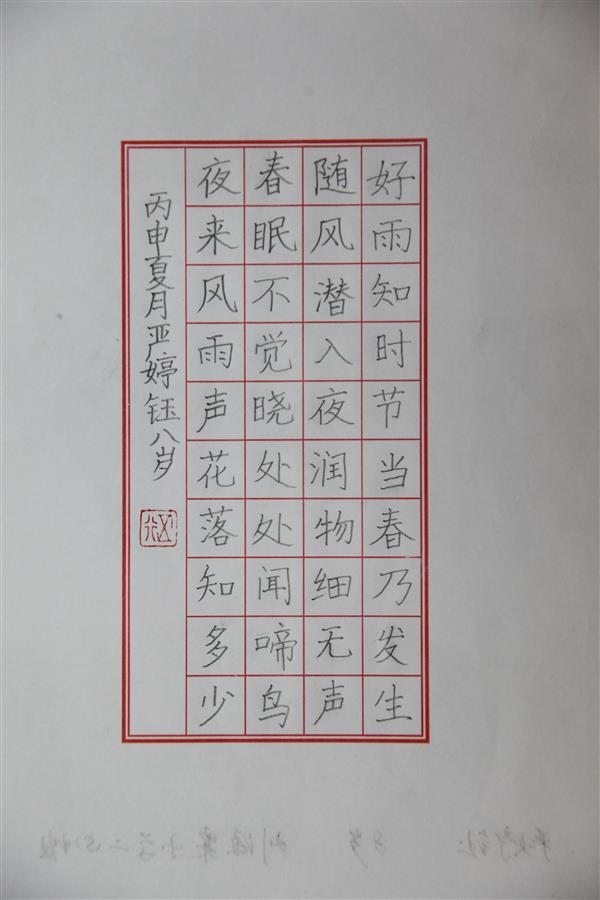 好雨知时节当春乃发生
随风潜入夜润物细无声
春眠不觉晓处处闻啼鸟
夜来风雨声花落知多少
丙申夏月严婷钰八岁